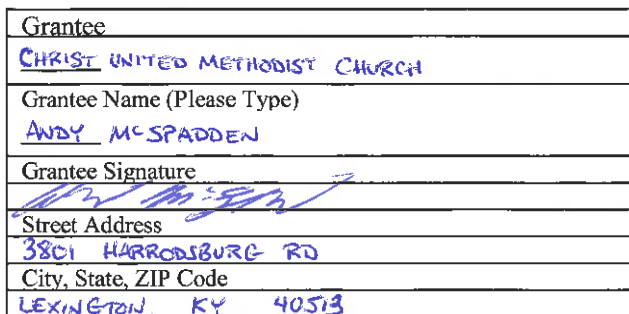 Grantee
CHRIST UNITED METHODIST CHURCH
Grantee Name (Please Type)
ANDY McSPADDEN
Grantee Signature
Street Address
3801 HARRODSBURG RD
City, State, ZIP Code
LEXINGTON, KY 40513